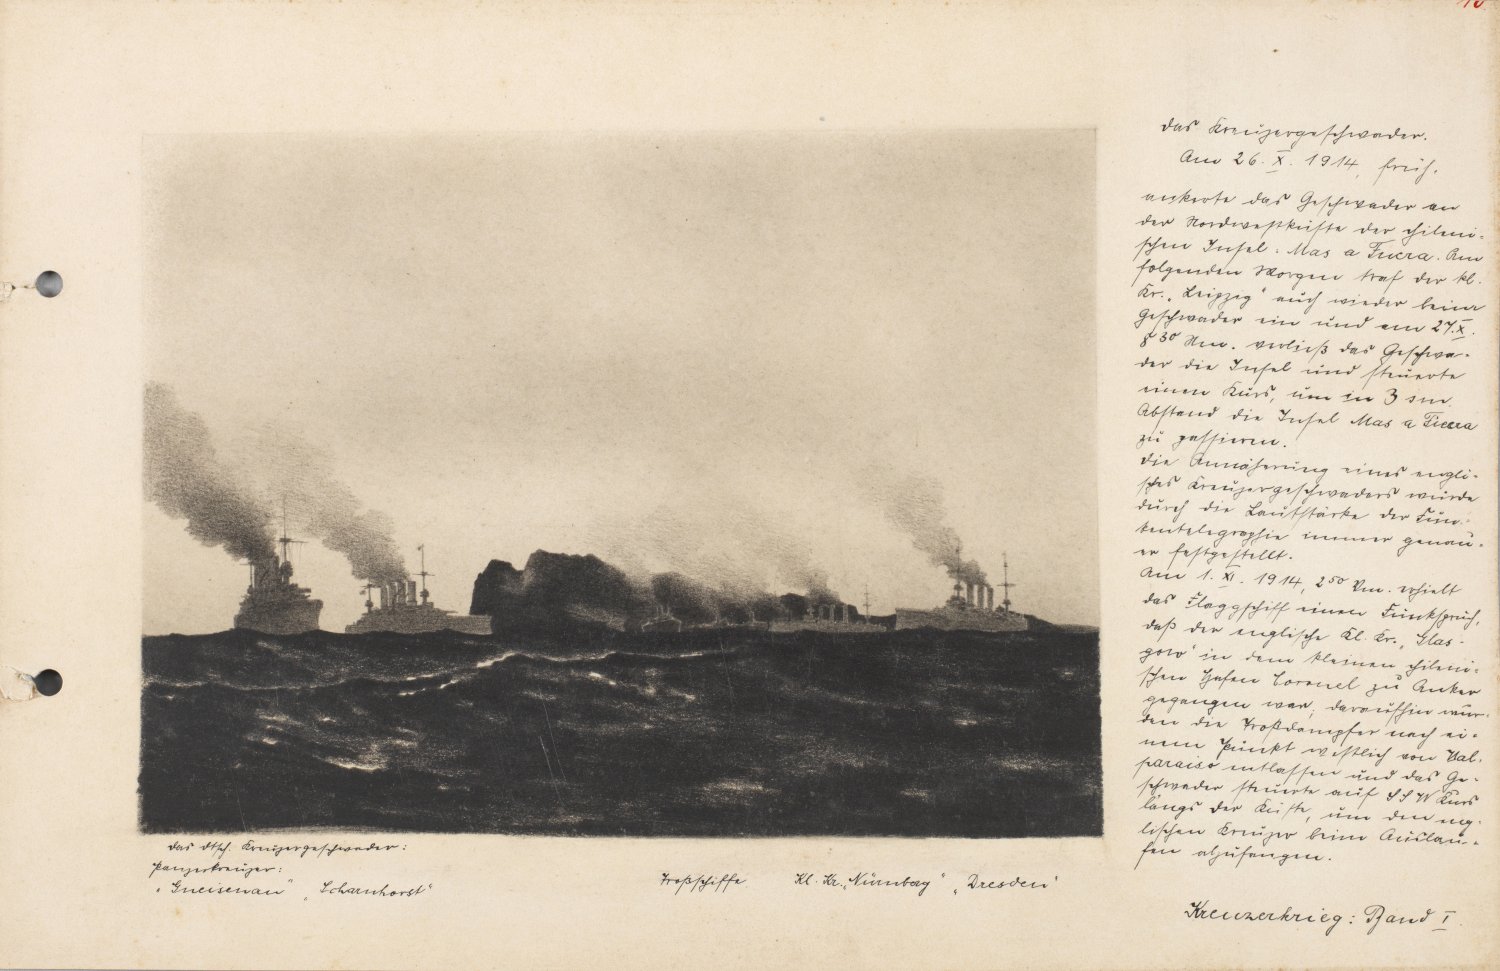 10.
Das Kreuzergeschwader.
Am 26. X. 1914, früh.
ankerte das Geschwader an
der Nordwestküste der chileni-
schen Insel: Mas a Fuera. Am
folgenden Morgen traf der kl.
Kr. „Leipzig" auch wieder beim
Geschwader ein und am 27. X.
8 30 Nm. verließ das Geschwa-
der die Insel und steuerte
einen Kurs, um in 3 sm.
Abstand die Insel Mas a Tierra
zu passieren.
Die Annäherung eines engli-
sches Kreuzergeschwaders wurde
durch die Lautstärke der Fun-
kentelegraphie immer genau-
er festgestellt.
Am 1. XI. 1914, 2 50 Vm. erhielt
das Flaggschiff einen Funkspruch,
daß der englische Kl. Kr. „Glas-
gow" in dem kleinen chileni-
schen Hafen Coronel zu Anker
gegangen war; daraufhin wur-
den die Troßdampfer nach ei-
nem Punkt westlich von Val-
paraiso entlassen und das Ge-
schwader steuerte auf SSW Kurs
längs der Küste, um den eng-
lischen Kreuzer beim Auslau-
fen abzufangen.
Kreuzerkrieg: Band I.
Das dtsch. Kreuzergeschwader:
Panzerkreuzer:
„Gneisenau" „Scharnhorst" Troßschiffe Kl. Kr. „Nürnberg" „Dresden"